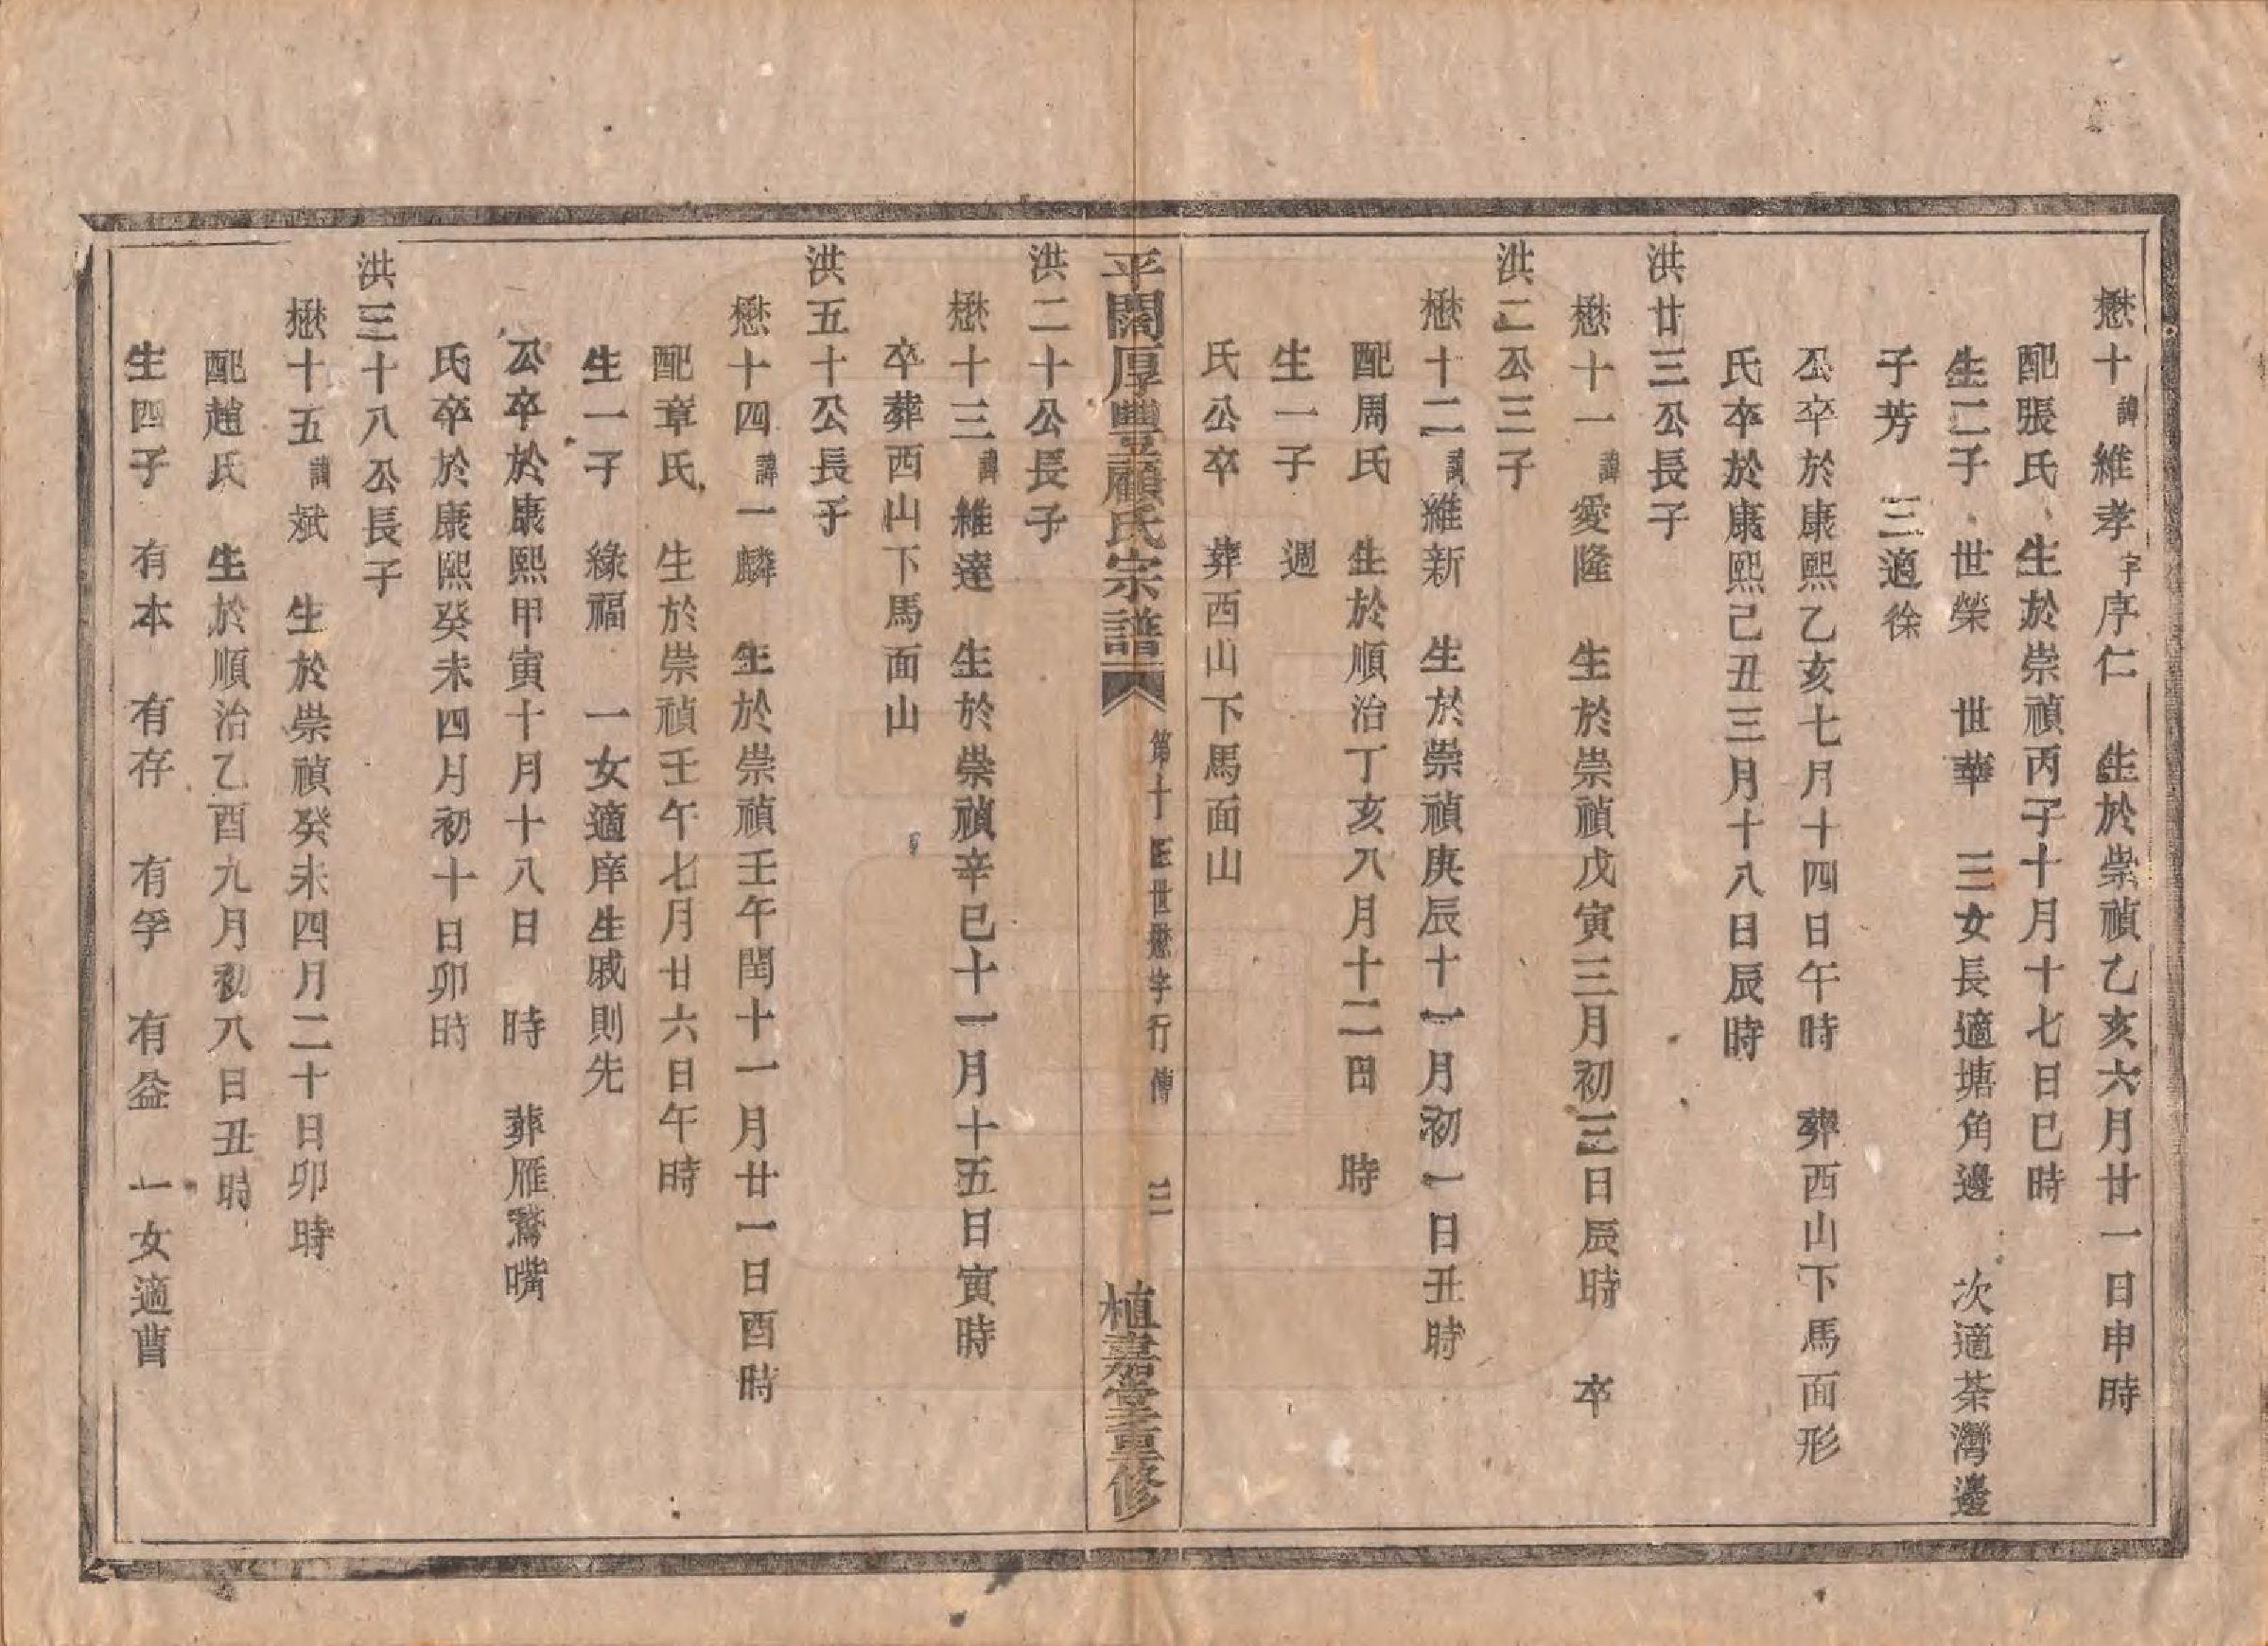 懋十諱維孝字序仁　生於崇禎乙亥六月廿一日申時
配張氏　生於崇禎丙子十月十七日巳時
生二子　世榮　世華　三女長適塘角邊　次適茶灣邊
子芳　三適徐
公卒於康熙乙亥七月十四日午時　葬西山下馬面形
氏卒於康熙己丑三月十八日辰時
洪廿三公長子
懋十一諱愛隆　生於崇禎戊寅三月初三日辰時　卒
洪二公三子
懋十二諱維新　生於崇禎庚辰十一月初一日丑時
配周氏　生於順治丁亥八月十二日　時
生一子　週
氏公卒　葬西山下馬面山
平閣厚豐顧氏宗譜　第十四世懋字行傳　二　植嘉堂重修
洪二十公長子
懋十三諱維達　生於崇禎辛巳十一月十五日寅時
卒葬西山下馬面山
洪五十公長子
懋十四諱一麟　生於崇禎壬午閏十一月廿一日酉時
配章氏　生於崇禎壬午七月廿六日午時
生一子　綠福　一女適庠生戚則先
公卒於康熙甲寅十月十八日　時　葬雁鶩嘴
氏卒於康熙癸未四月初十日卯時
洪三十八公長子
懋十五諱斌　生於崇禎癸未四月二十日卯時
配趙氏　生於順治乙酉九月初八日丑時
生四子　有本　有存　有孚　有益　一女適曹